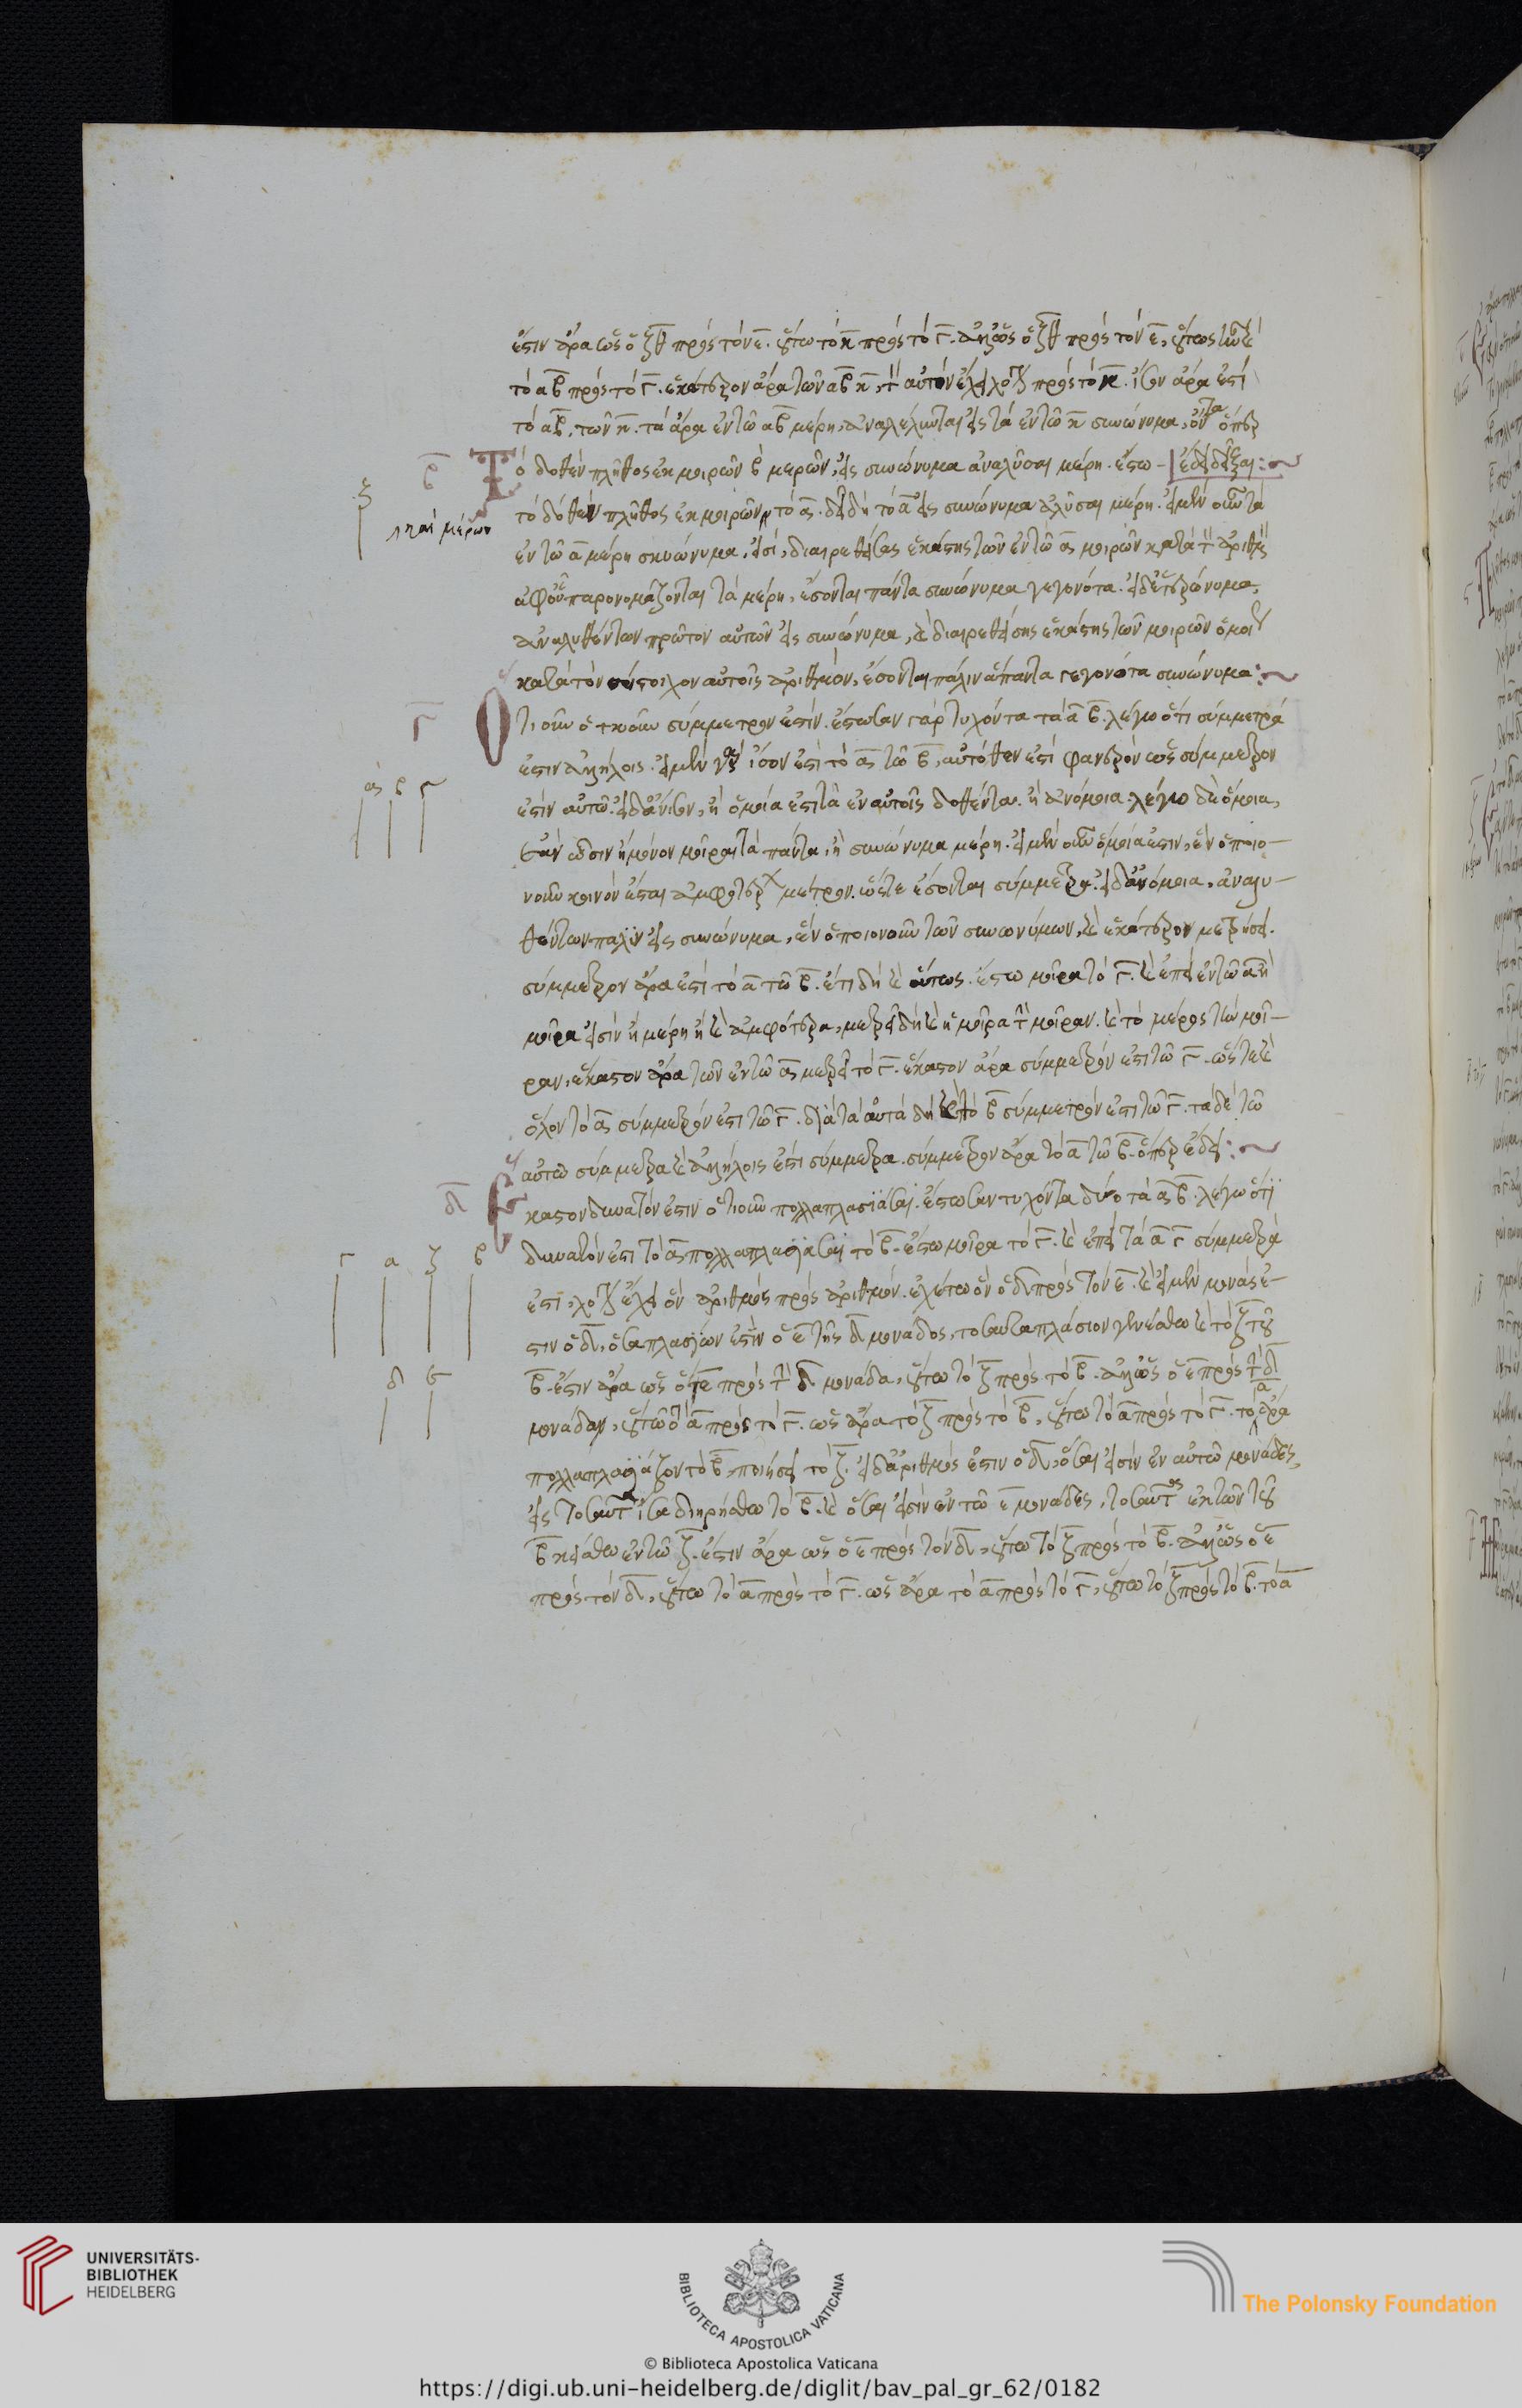 ἔστιν ἄρα ὡς ὁ ζ̅θ̅ πρὸς τὸν ε̅. οὕτω τὸ κ̅ πρὸς τὸ γ̅. ἀλλ' ὡς ὁ ζ̅θ̅ πρὸς τὸν ε̅, οὕτως
τὸ α̅β̅ πρὸς τὸ γ̅. ἑκάτερον ἄρα τῶν α̅β̅ κ̅, τὸν αὐτὸν ἔχει λόγον πρὸς τὸ. ἴσον ἄρα ἐστὶ
τὸ α̅β̅, τῶν κ̅. τὰ ἄρα ἐν τῶ α̅β̅ μέρη, ἀναλέλυνται εἰς τὰ ἐν τῶ κ̅ συνώνυμα, ὄντα ὅπερ
β̅ Τὸ δοθὲν πλῆθος ἐκ μοιρῶν ἢ μερῶν, εἰς συνώνυμα ἀναλῦσαι μέρη. ἔστω - ἔδει δεῖξαι :~
ξ
τὸ δοθὲν πλῆθος ἐκ μοιρῶν τὸ α̅. δεῖ δὴ τὸ α̅ εἰς συνώνυμα ἀλῦσαι μέρη. εἰ μὲν οὖν τὰ
καὶ μέρων
ἐν τῶ α̅ μέρη συνώνυμα, εἰσὶ, διαιρεθείσης ἑκάστης τῶν ἐν τῶ α̅ μοιρῶν κατὰ τὸν ἀριθμὸν
ἀφ' οὗ παρονομάζονται τὰ μέρη, ἔσονται πάντα συνώνυμα γεγονότα. εἰ δὲ ἑτερώνυμα,
ἀναλυθέντων πρῶτον αὐτῶν εἰς συνώνυμα, καὶ διαιρεθείσης ἑκάστης τῶν μοιρῶν ὁμοί
κατὰ τὸν σύστοιχον αὐτοῖς ἀριθμὸν, ἔσονται πάλιν ἅπαντα γεγονότα συνώνυμα :~
γ̅ Ὁτιοῦν ὁτωοῦν σύμμετρον ἐστίν. ἔστωσαν γὰρ τυχόντα τὰ α̅ β̅. λέγω ὅτι σύμμετρά
ἐστιν ἀλλήλοις. εἰ μὲν γὰρ ἴσον ἐστὶ τὸ α̅ τῶ β̅, αὐτόθεν ἐστὶ φανερὸν ὡς σύμμετρον
α β γ
ἐστὶν αὐτῶ. εἰ δ' ἄνισον, ἢ ὅμοια ἐστὶ τὰ ἐν αὐτοῖς δοθέντα. ἢ ἀνόμοια. λέγω δὲ ὅμοια,
ἐὰν ὦσιν ἢ μόνον μοῖραι τὰ πάντα, ἢ συνώνυμα μέρη. εἰ μὲν οὖν ὅμοιά ἐστιν, ἓν ὁποιο-
νοῦν κοινὸν ἔσται ἀμφοτέρων μέτρον. ὥστε ἔσονται σύμμετρα. εἰ δ' ἀνόμοια, ἀναλυ-
θέντων πάλιν εἰς συνώνυμα, ἓν ὁποιονοῦν τῶν συνωνύμων, καὶ ἑκάτερον μετρήσει.
σύμμετρον ἄρα ἐστὶ τὸ α̅ τῶ β̅. ἔτι δὴ καὶ οὕτως. ἔστω μοῖρα τὸ γ̅. καὶ ἐπεὶ ἐν τῶ α̅ ἢ
μοῖραι εἰσὶν ἢ μέρη ἢ καὶ ἀμφότερα, μετρεῖ δὴ καὶ ἡ μοῖρα τὴν μοῖραν. καὶ τὸ μέρος τὴν μοῖ-
ραν, ἕκαστον ἄρα τῶν ἐν τῶ α̅ μετρεῖ τὸ γ̅. ἕκαστον ἄρα σύμμετρόν ἐστι τῶ γ̅. ὥστε καὶ
ὅλον τὸ α̅ σύμμετρόν ἐστι τῶ γ̅. διὰ τὰ αὐτὰ δὴ καὶ τὸ β̅ σύμμετρόν ἐστι τῶ γ̅. τὰ δὲ τῶ
αὐτῶ σύμμετρα καὶ ἀλλήλοις ἐστὶ σύμμετρα. σύμμετρον ἄρα τὸ α̅ τῶ β̅. ὅπερ ἔδει :~
δ̅ Ἕκαστον δυνατόν ἐστιν ὁτιοῦν πολλαπλασιάσαι. ἔστωσαν τυχόντα δύο τὰ α̅ β̅. λέγω ὅτι
γ α ζ β
δυνατόν ἐστι τὸ α̅ πολλαπλασιάσαι τὸ β̅. ἔστω μοῖρα τὸ γ̅. καὶ ἐπεὶ τὰ α̅ γ̅ σύμμετρά
ἐστι, λόγον ἔχει ὃν ἀριθμὸς πρὸς ἀριθμόν. ἐχέτω ὃν ὁ δ̅ πρὸς τὸν ε̅. καὶ εἰ μὲν μονάς ἐ-
στιν ὁ δ̅, ὁσαπλασίων ἐστὶν ὁ ε̅ τῆς δ̅ μονάδος, τοσαυταπλάσιον γενέσθω καὶ τὸ ζ̅ τοῦ
δ ε
β̅. ἔστιν ἄρα ὡς ὁ ε̅ πρὸς τὴν δ̅ μονάδα, οὕτω τὸ ζ̅ πρὸς τὸ β̅. ἀλλ' ὡς ὁ ε̅ πρὸς τὴν δ̅
μονάδα, οὕτω τὸ α̅ πρὸς τὸ γ̅. ὡς ἄρα τὸ ζ̅ πρὸς τὸ β̅, οὕτω τὸ α̅ πρὸς τὸ γ̅. τὸ α̅ ἄρα
πολλαπλασιάζον τὸ β̅, ποιήσει τὸ ζ̅. εἰ δ' ἀριθμός ἐστιν ὁ δ̅, ὅσαι εἰσὶν ἐν αὐτῶ μονάδες,
εἰς τοσαῦτα ἴσα διῃρήσθω τὸ β̅. καὶ ὅσαι εἰσὶν ἐν τῶ ε̅ μονάδες, τοσαῦτα ἐκ τῶν τοῦ
β̅ κείσθω ἐν τῶ ζ̅. ἔστιν ἄρα ὡς ὁ ε̅ πρὸς τὸν δ̅, οὕτω τὸ ζ̅ πρὸς τὸ β̅. ἀλλ' ὡς ὁ ε̅
πρὸς τὸν δ̅, οὕτω τὸ α̅ πρὸς τὸ γ̅. ὡς ἄρα τὸ α̅ πρὸς τὸ γ̅, οὕτω τὸ ζ̅ πρὸς τὸ β̅. τὸ α̅
UNIVERSITÄTS-
BIBLIOTHEK
HEIDELBERG
BIBLIOTECA APOSTOLICA VATICANA
The Polonsky Foundation
© Biblioteca Apostolica Vaticana
https://digi.ub.uni-heidelberg.de/diglit/bav_pal_gr_62/0182